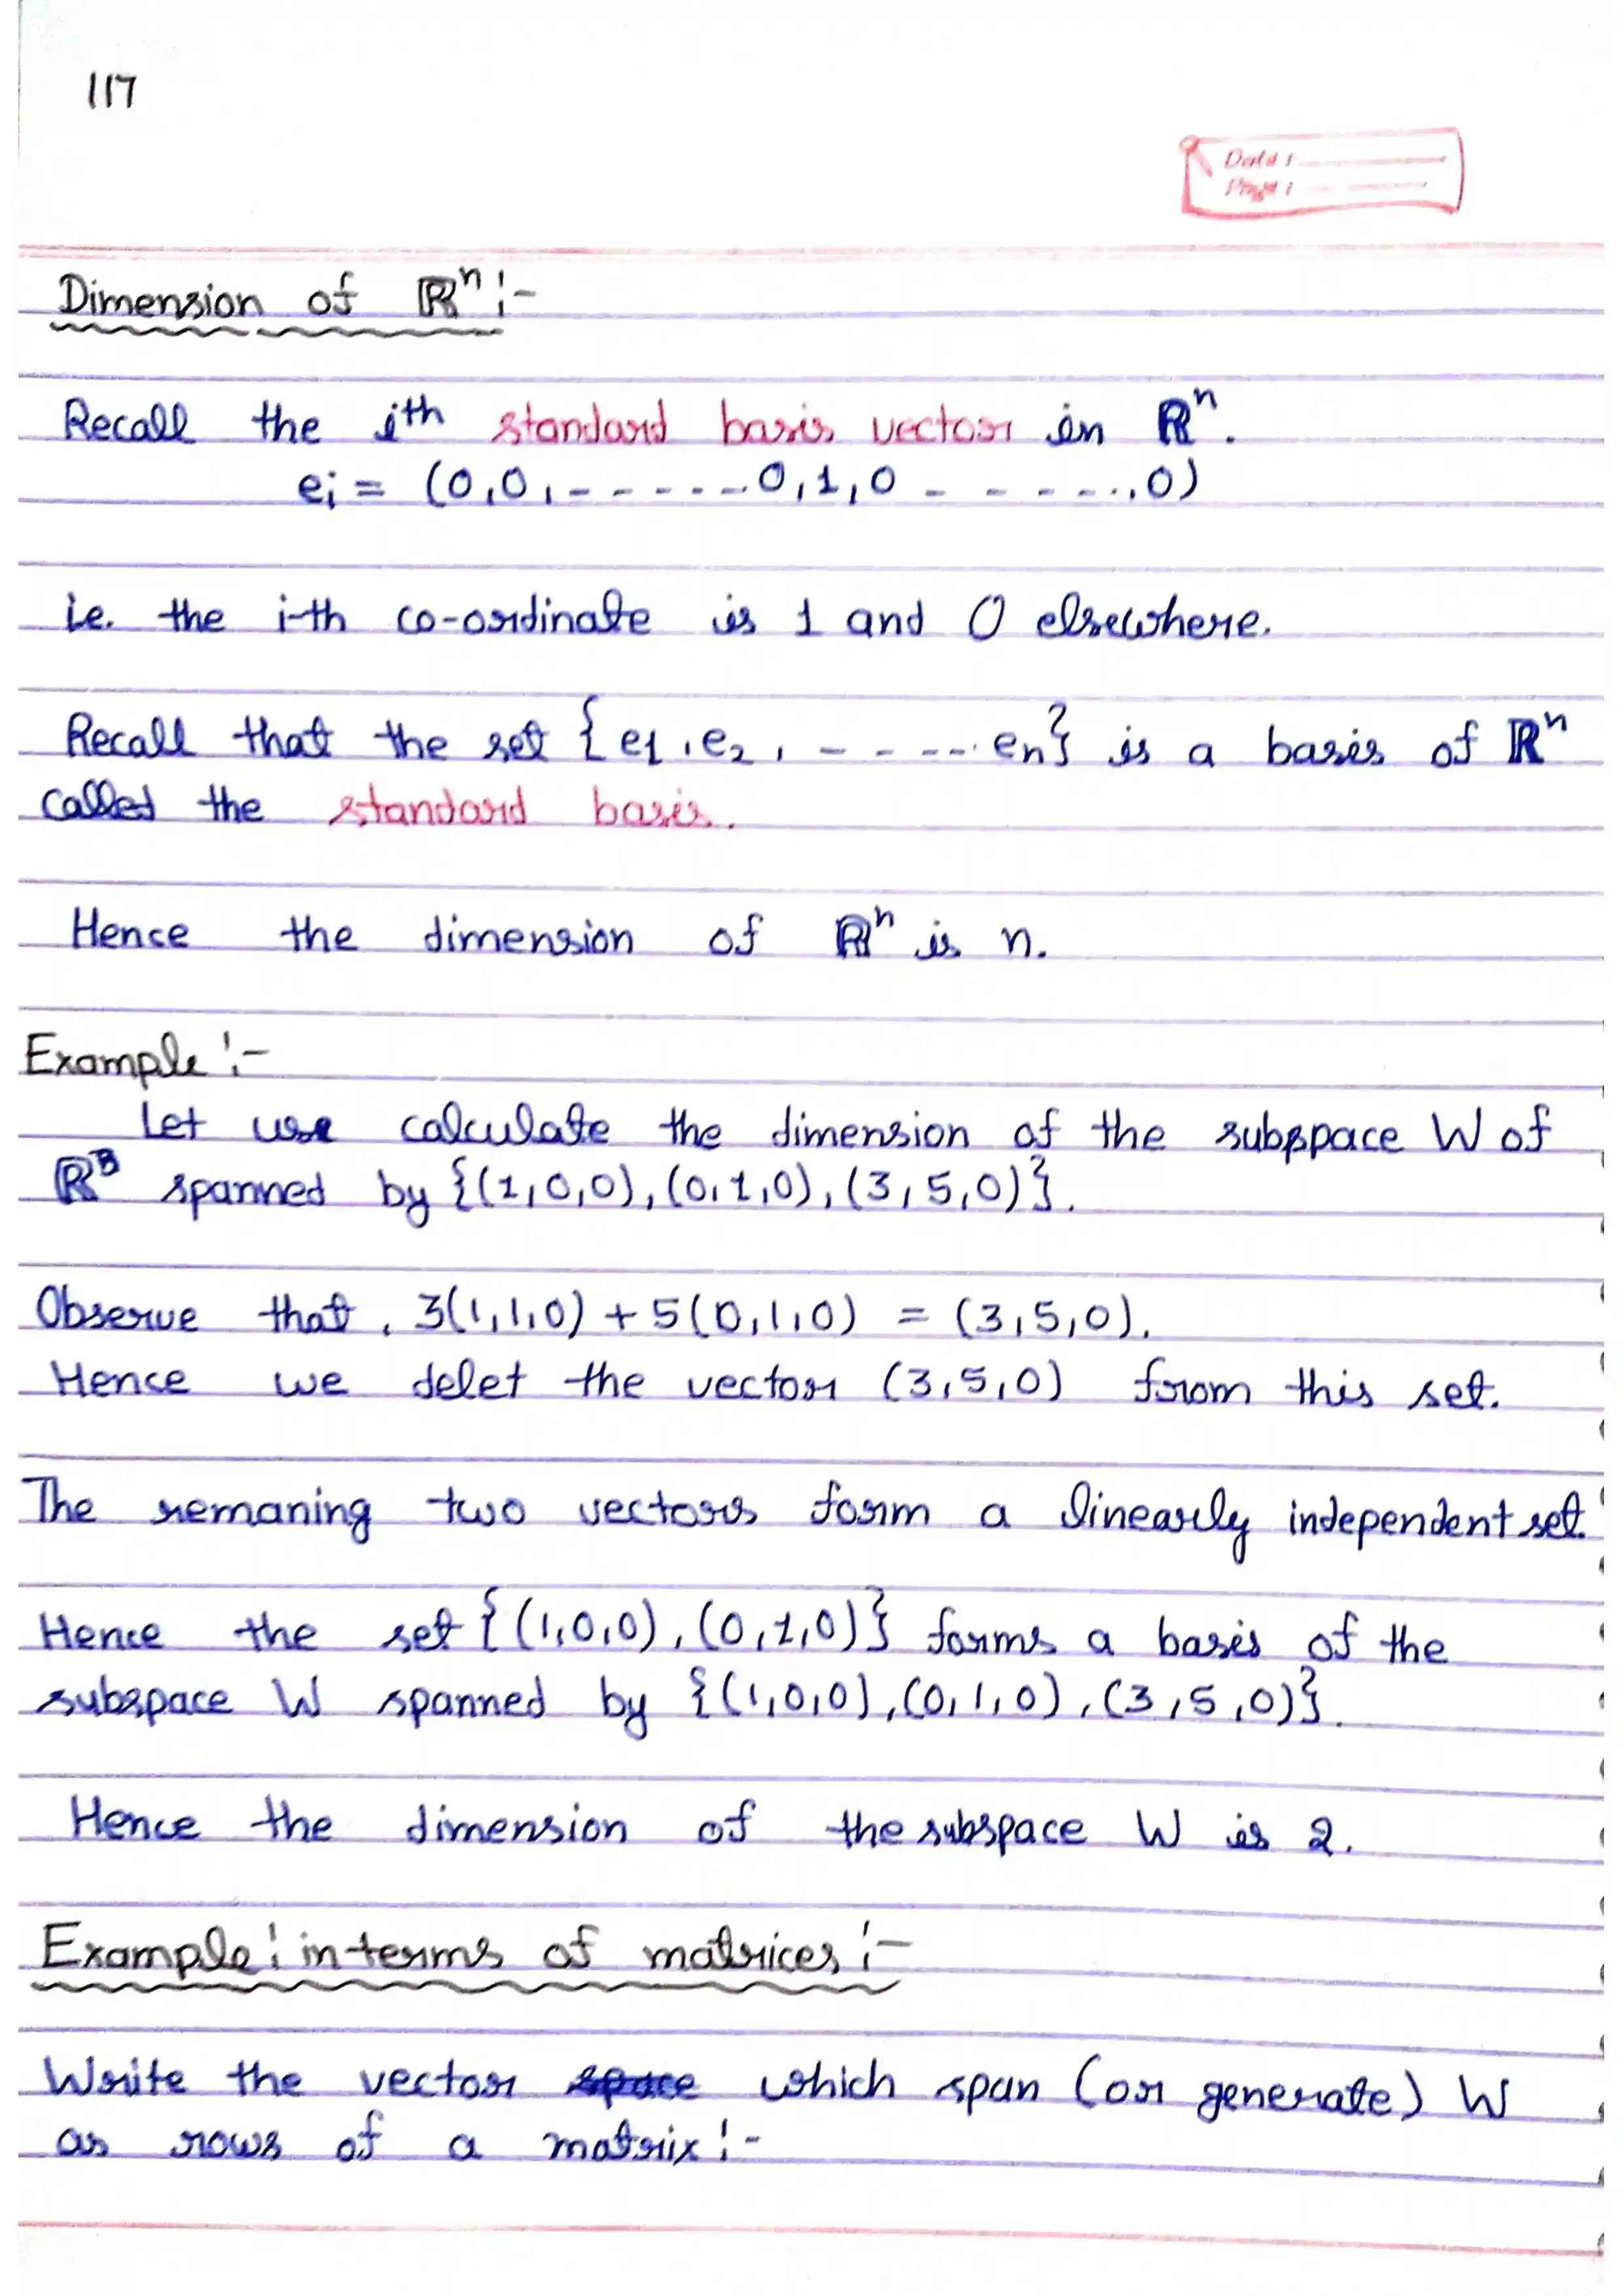 117
Date :
Page :
Dimension of ℝⁿ :-
Recall the ith standard basis vector in ℝⁿ.
ei = (0,0,------0,1,0 - - - - --,0)
i.e. the i-th co-ordinate is 1 and 0 elsewhere.
Recall that the set {e1,e2, - - ---- en} is a basis of ℝⁿ
called the standard basis.
Hence the dimension of ℝⁿ is n.
Example :-
Let us calculate the dimension of the subspace W of
ℝ³ spanned by {(1,0,0),(0,1,0),(3,5,0)}.
Observe that, 3(1,1,0) + 5(0,1,0) = (3,5,0).
Hence we delet the vector (3,5,0) from this set.
The remaning two vectors form a linearly independent set.
Hence the set {(1,0,0),(0,1,0)} forms a basis of the
subspace W spanned by {(1,0,0),(0,1,0),(3,5,0)}.
Hence the dimension of the subspace W is 2.
Example: in terms of matrices :-
Write the vector space which span (or generate) W
as rows of a matrix :-